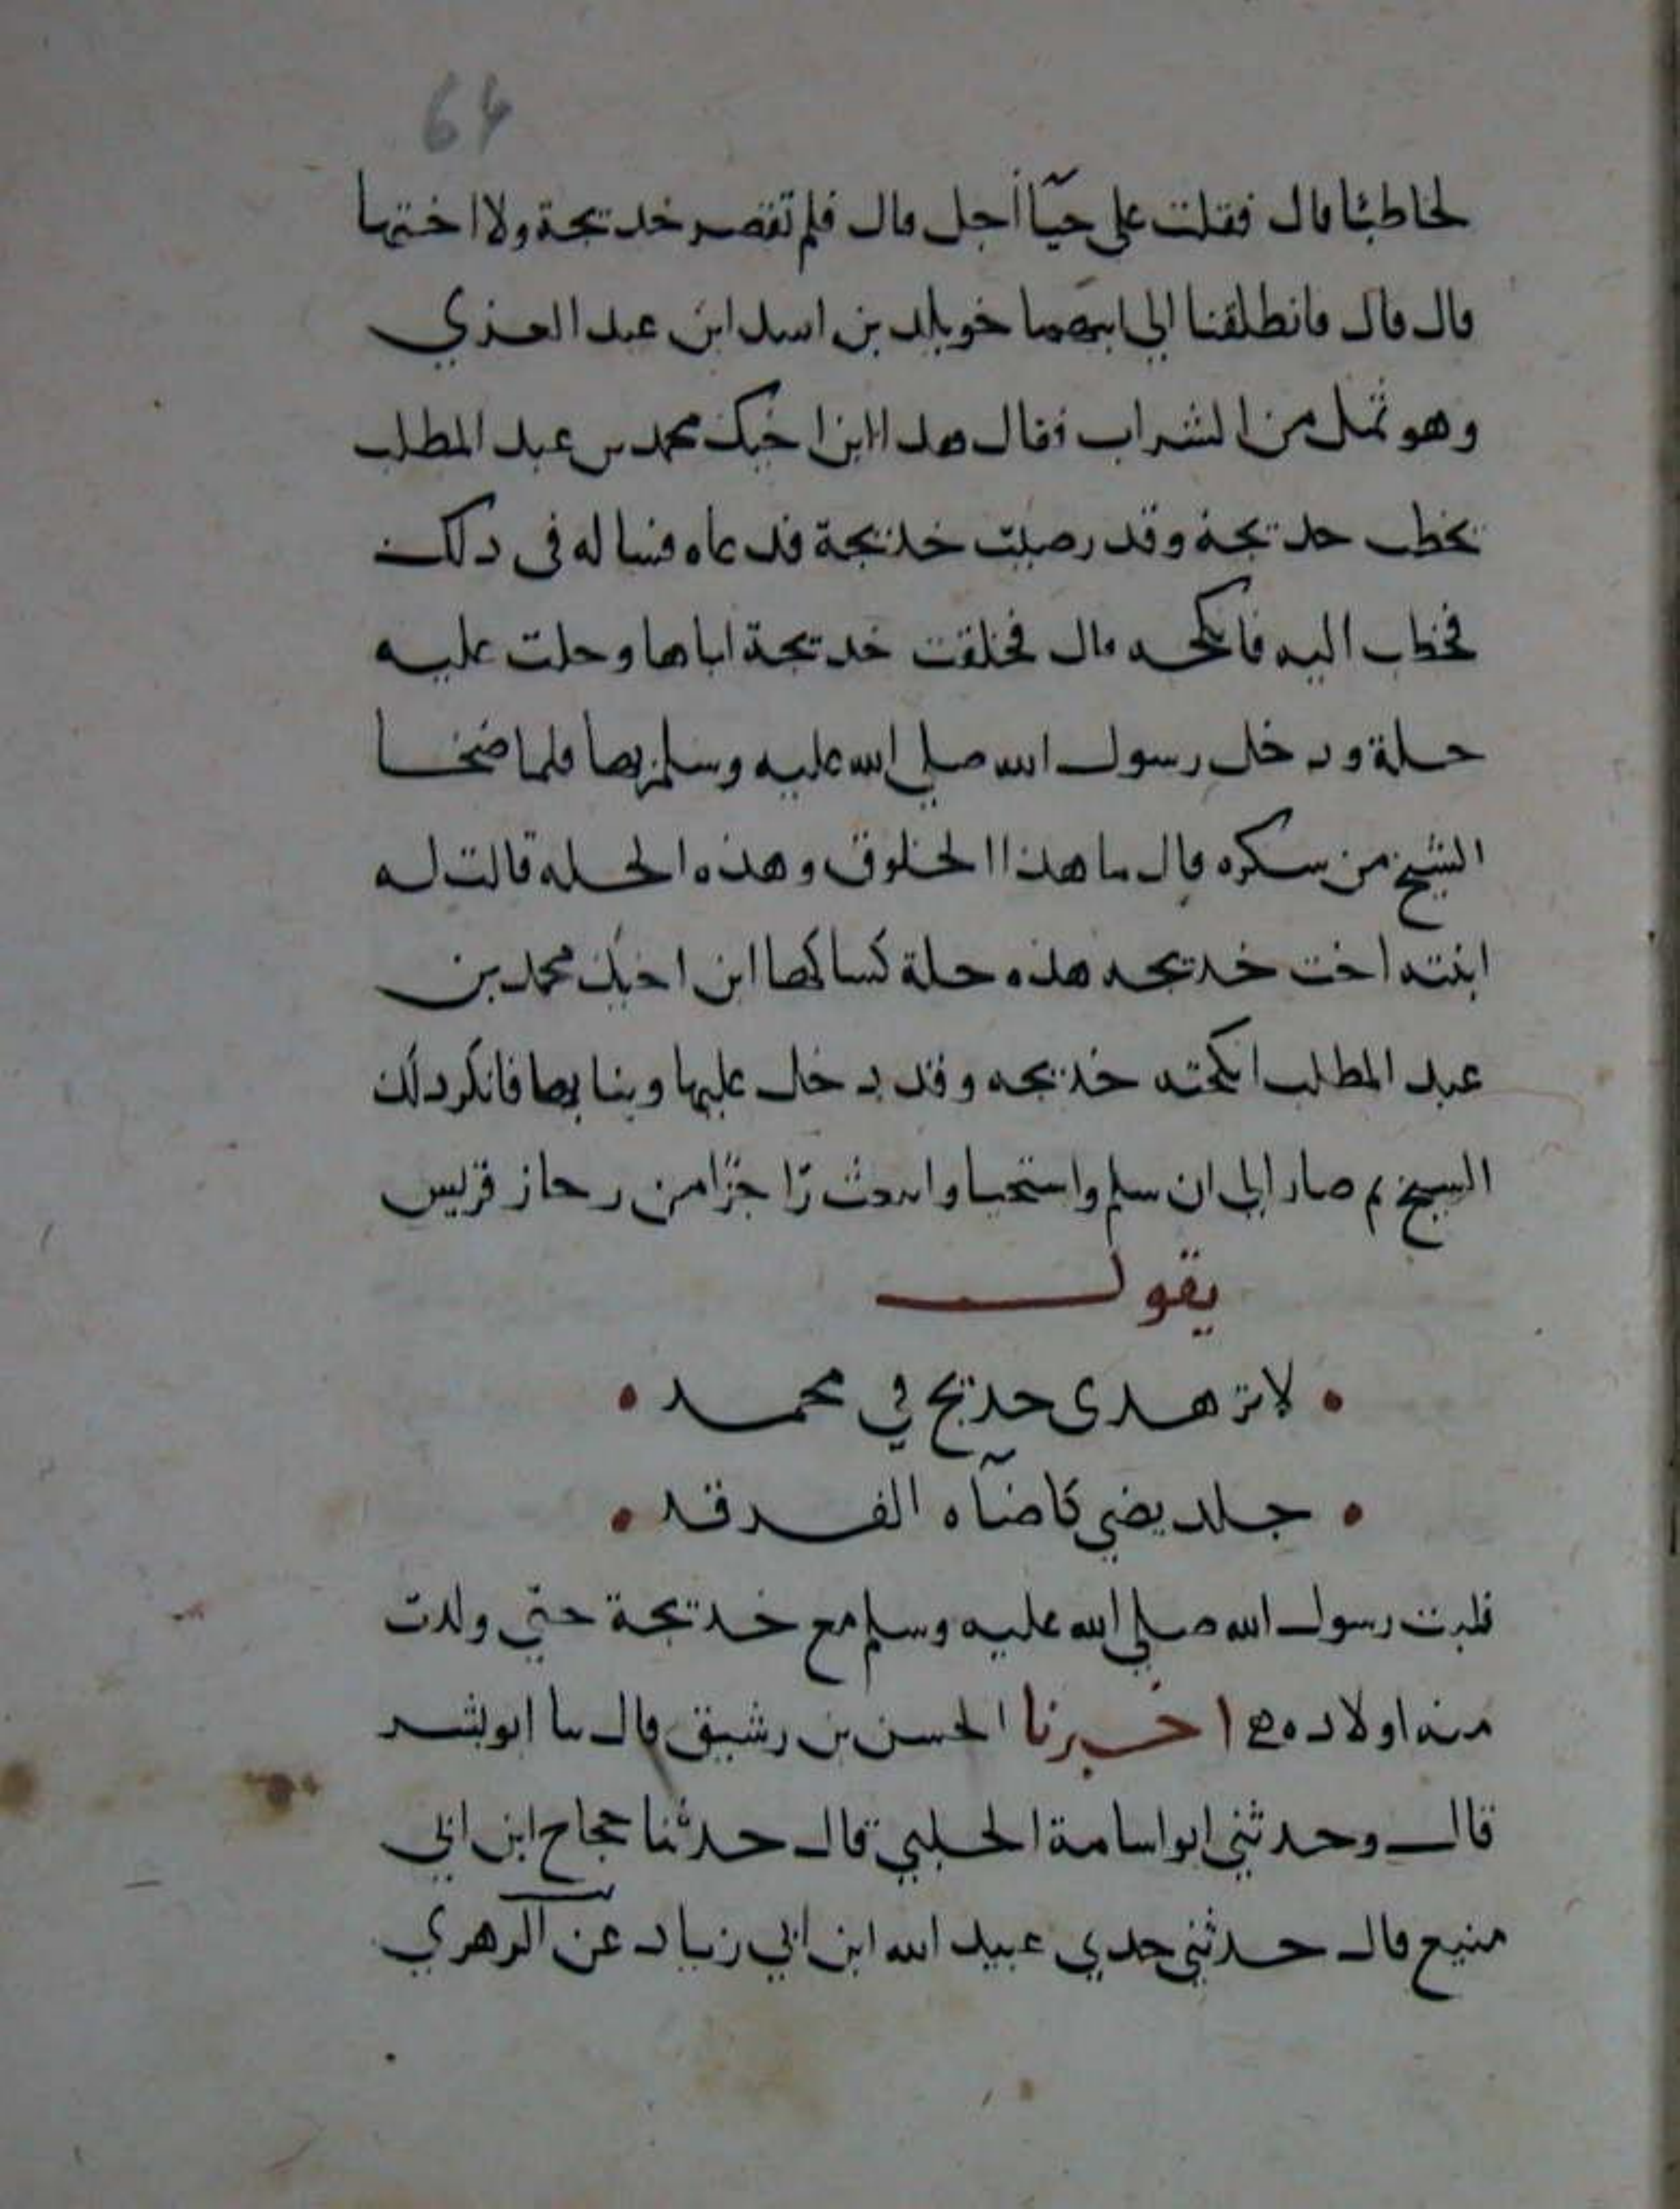 64
لخاطبا قال فقلت على حيآ أجل قال فلم تقصر خديجة ولا اختها
قال قال فانطلقنا الى ابيهما خويلد بن اسد ابن عبد العزي
وهو ثمل من الشراب فقال هدا ابن اخيك محمد بن عبد المطلب
يخطب حديجة وقد رضيت خديجة فدعاه فساله في دلك
فخطب اليه فانكحه قال فخلقت خديجة اباها وحلت عليه
حلة ودخل رسول الله صلي الله عليه وسلم بها فلما ضخا
الشيخ من سكره قال ما هذا الخلوق وهذه الحله قالت له
ابنته اخت خديجه هذه حلة كساكها ابن اخيك محمد بن
عبد المطلب انكحته خديجه وقد دخل عليها وبنا بها فانكر دلك
السيخ تم صار الى ان سلم واستحيا رجاز قريس
يقول
لا تزهدى خديج في محمد
جلد يضي كاضآه الفرقد
فلبت رسول الله صلي الله عليه وسلم مع خديجة حتي ولدت
منه اولاده اخبرنا الحسن بن رشيق قال سا ابو بشر
قال وحدثني ابو اسامة الحلبي قال حدثنا حجاح ابن ابي
منيع قال حدثني جدي عبيد الله ابن ابي زياد عن الزهري